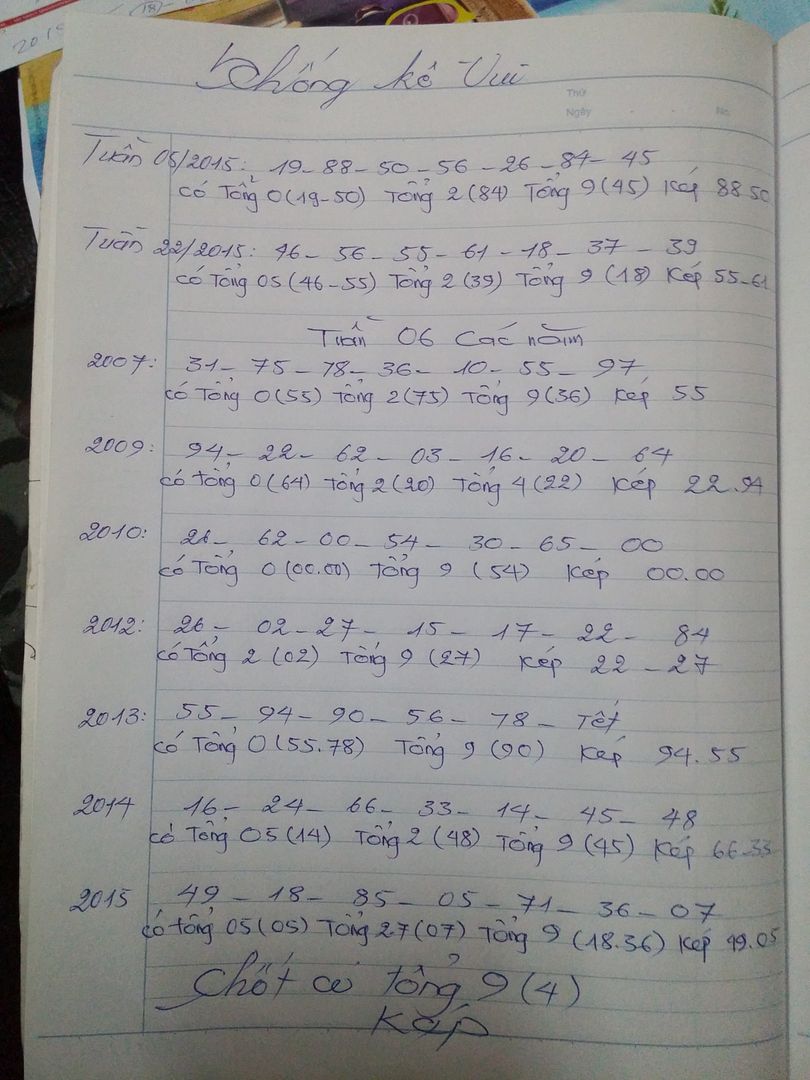 2015
(18)
Thống kê Vui
Thứ
Ngày No.
Tuần 05/2015: 19 - 88 - 50 - 56 - 26 - 84 - 45
có Tổng 0 (19-50) Tổng 2 (84) Tổng 9 (45) Kép 88 50
Tuần 22/2015: 46 - 56 - 55 - 61 - 18 - 37 - 39
có Tổng 05 (46-55) Tổng 2 (39) Tổng 9 (18) Kép 55-61
Tuần 06 Các năm
2007: 31 - 75 - 78 - 36 - 10 - 55 - 97
có Tổng 0 (55) Tổng 2 (75) Tổng 9 (36) Kép 55
2009: 94 - 22 - 62 - 03 - 16 - 20 - 64
có tổng 0 (64) Tổng 2 (20) Tổng 4 (22) Kép 22.94
2010: 26 - 62 - 00 - 54 - 30 - 65 - 00
có Tổng 0 (00.00) Tổng 9 (54) Kép 00.00
2012: 26 - 02 - 27 - 15 - 17 - 22 - 84
có Tổng 2 (02) Tổng 9 (27) Kép 22 - 27
2013: 55 - 94 - 90 - 56 - 78 - Tết
có Tổng 0 (55.78) Tổng 9 (90) Kép 94.55
2014 16 - 24 - 66 - 33 - 14 - 45 - 48
có Tổng 05 (14) Tổng 2 (48) Tổng 9 (45) Kép 66-33
2015 49 - 18 - 85 - 05 - 71 - 36 - 07
có tổng 05 (05) Tổng 27 (07) Tổng 9 (18.36) Kép 49.05
Chốt có tổng 9 (4)
Kép